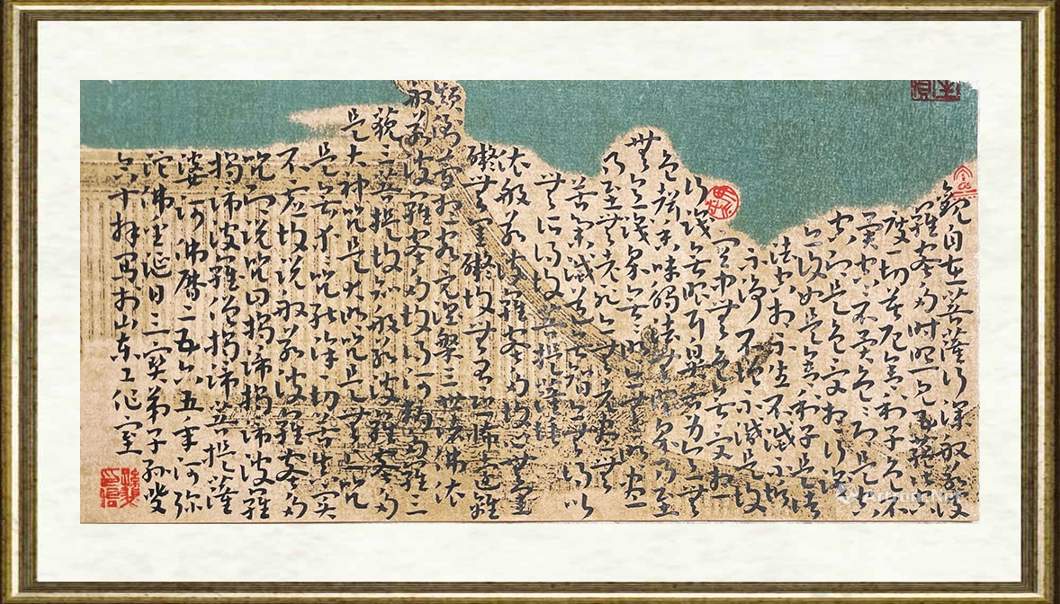 觀自在菩薩行深般若波
羅蜜多時照見五蘊皆空
度一切苦厄舍利子色不
異空空不異色色即是空
空即是色受想行識
亦復如是舍利子是諸
法空相不生不滅不垢
不淨不增不減是故
空中無色無受想
行識無眼耳鼻舌身意無
色聲香味觸法無眼界乃至
無意識界無無明亦無無明盡
乃至無老死亦無老死盡無
苦集滅道無智亦無得以
無所得故菩提薩埵
依般若波羅蜜多故心無罣
礙無罣礙故無有恐怖遠離
顛倒夢想究竟涅槃三世諸佛依
般若波羅蜜多故得阿耨多羅三
藐三菩提故知般若波羅蜜多
是大神咒是大明咒是無上咒
是無等等咒能除一切苦真實
不虛故說般若波羅蜜多
咒即說咒曰揭諦揭諦波羅
揭諦波羅僧揭諦菩提薩
婆訶 佛曆二五六五年阿弥
陀佛聖誕日三寶弟子孫
六十拜寫於山東工作室
Artron.Net